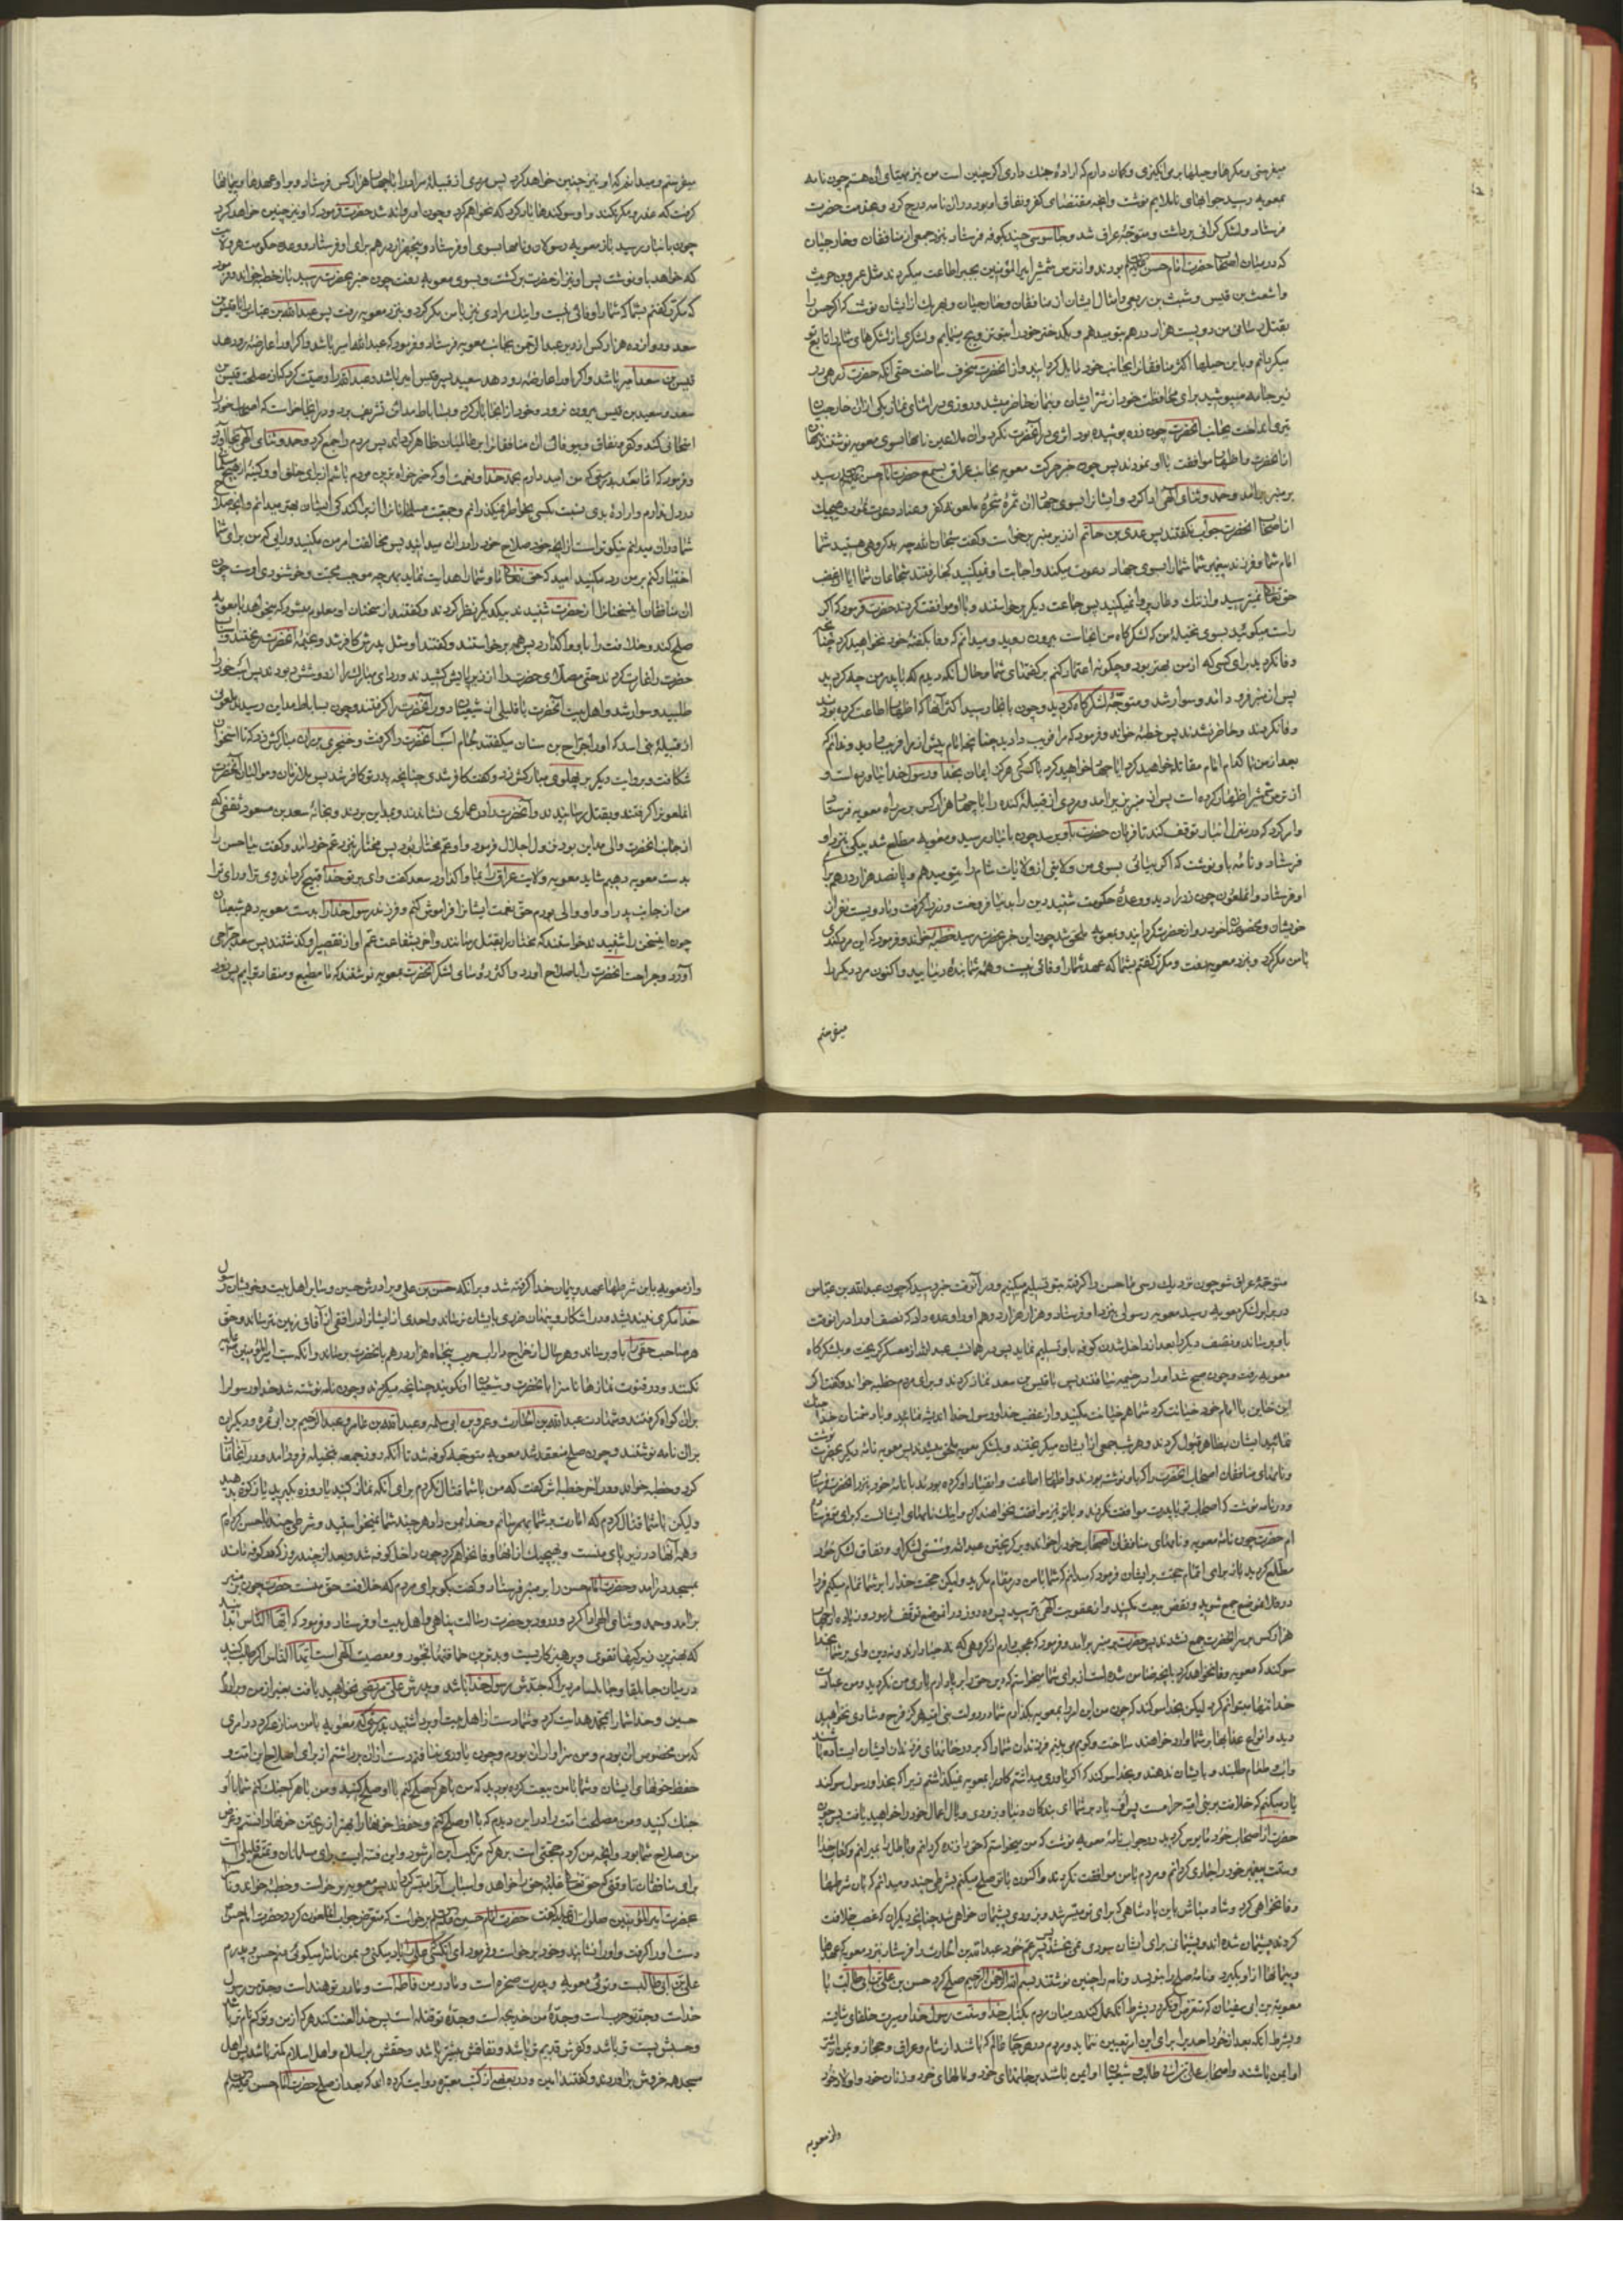 میفرستی و مکرها و حیلها برمی‌انگیزی و گمان دارم که اراده جنك داری اگر چنین است من نیز مهیای آن هستم چون نامه
بمعویه رسید جوابهای ناملایم نوشت و آنچه مقتضای کفر و نفاق او بود در آن نامه درج کرد و بخدمت حضرت
فرستاد و لشکر گرانی برداشت و متوجّه عراق شد و جاسوسی چند بکوفه فرستاد بنزد جمعی از منافقان و خارجیان
که در میان اصحاب حضرت امام حسن بودند و از ترس شمشیر امیرالمؤمنین بجبر اطاعت میکردند مثل عمرو بن حریث
و اشعث بن قیس و شبث بن ربعی و امثال ایشان از منافقان و خارجیان و بهر یك از ایشان نوشت که اگر حسن را
بقتل رسانی من دویست هزار درهم بتو میدهم و یکدختر خود را بتو تزویج مینمایم و لشکری از لشکرهای شام را تابع تو
میکردانم و باین حیلها اکثر منافقانرا بجانب خود مایل کردانید و از آنحضرت منحرف ساخت حتی آنکه حضرت زرهی در
زیر جامه میپوشید برای محافظت خود از شر ایشان و بنماز حاضر میشد روزی در اثنای نماز یکی از آن خارجیان
تیری انداخت بجانب آنحضرت چون زره پوشیده بود اثری در آنحضرت نکرد و آن ملاعین نامها بسوی معویه نوشتند پنهان
از آنحضرت و اظهار موافقت با او نمودند پس چون خبر حرکت معویه بجانب عراق بسمع حضرت امام حسن رسید
بر منبر برآمد و حمد و ثنای الهی ادا کرد و ایشانرا بسوی جهاد آن ثمره شجره ملعونه کفر و عناد دعوت نمود و هیچیك
از اصحاب آنحضرت جواب نگفتند پس عدی بن حاتم از زیر منبر برخاست و گفت سبحان الله چه بد گروهی هستید شما
امام شما و فرزند پیغمبر شما شما را بسوی جهاد دعوت میکند و اجابت او نمیکنید کجا رفتند شجاعان شما آیا از غضب
حق تعالی نمیترسید و از ننك و عار پروا نمیکنید پس جماعت دیگر برخواستند و با او موافقت کردند حضرت فرمود که اگر
راست میگوئید بسوی نخیله من که لشکرگاه من آنجاست بیرون روید و میدانم که وفا بگفته خود نخواهید کرد چنانچه
وفا نکردید برای کسی که از من بهتر بود و چگونه اعتماد کنم بر گفتهای شما و حال آنکه دیدم که با پدر من چه کردید
پس از منبر فرود آمد و سوار شد و متوجه لشکرگاه گردید و چون بآنجا رسید اکثر آنها که اظهار اطاعت کرده بودند
وفا نکردند و حاضر نشدند پس خطبه خواند و فرمود که مرا فریب دادید چنانچه امام پیش از مرا فریب دادید و ندانم که
بعد از من با کدام امام مقاتله خواهید کرد آیا جهاد خواهید کرد با کسی که هرگز ایمان بخدا و رسول خدا نیاورده است و
از ترس شمشیر اظهار کرده است پس از منبر بزیر آمد و مردی از قبیله کنده را با چهار هزار کس بر سر راه معویه فرستاد
و امر کرد که در منزل انبار توقف کند تا فرمان حضرت باو برسد چون بانبار رسید و معویه مطلع شد پیکی بنزد او
فرستاد و نامه باو نوشت که اگر بیائی بسوی من ولایتی از ولایات شام را بتو میدهم و پانصد هزار درهم برای
او فرستاد و آن ملعون چون زر را دید و وعده حکومت شنید دین را بدنیا فروخت و زر را گرفت و با دویست نفر از
خویشان و مخصوصان خود رو از حضرت گردانید و بمعویه ملحق شد چون این خبر بحضرت رسید خطبه خواند و فرمود که این مرد کندی
با من مکر کرد و بنزد معویه رفت و مکرر گفتم بشما که عهد شما را وفائی نیست و همه شما بنده دنیائید و اکنون مرد دیگر را
میفرستم
میفرستم و میدانم که او نیز چنین خواهد کرد پس مردی از قبیله مراد را با چهار هزار کس فرستاد و بر او عهدها و پیمانها
گرفت که غدر و مکر نکند و او سوگندها یاد کرد که نخواهم کرد و چون او روانه شد حضرت فرمود که او نیز چنین خواهد کرد
چون بانبار رسید باز معویه رسولان و نامها بسوی او فرستاد و پنجهزار درهم برای او فرستاد و وعده حکومت هر ولایت
که خواهد باو نوشت پس او نیز از حضرت برگشت و بسوی معویه رفت چون خبر بحضرت رسید باز خطبه خواند و فرمود
که مکرر گفتم بشما که شما را وفائی نیست و اینك مرادی نیز با من مکر کرد و بنزد معویه رفت پس عبدالله بن عباس را با قیس بن
سعد و دوازده هزار کس از دیر عبدالرحمن بجانب معویه فرستاد و فرمود که عبدالله امیر باشد و اگر او را عارضه رو دهد
قیس بن سعد امیر باشد و اگر او را عارضه رو دهد سعید پسر قیس امیر باشد و عبدالله را وصیت کرد که از مصلحت قیس بن
سعد و سعید بن قیس بیرون نرود و خود از آنجا بار کرد و بساباط مداین تشریف برد و در آنجا خواست که اصحاب خود را
امتحان کند و کفر و نفاق و بیوفائی آن منافقانرا بر عالمیان ظاهر گرداند پس مردم را جمع کرد و حمد و ثنای الهی بجا آورد
و فرمود که اما بعد بدرستی که من امید دارم بحمد خدا و نعمت او که خیرخواه‌ترین مردم باشم از برای خلق او و کینه از هیچ مسلمانی
در دل ندارم و اراده بدی نسبت بکسی بخاطر نمیگذرانم و جمعیت مسلمانانرا از پراکندگی ایشان بهتر میدانم و آنچه صلاح
شما در آن میدانم نیکوتر است از آنچه خود صلاح خود را در آن میدانید پس مخالفت امر من مکنید و رایی که من برای شما
اختیار کنم بر من رد مکنید امید که حق تعالی ما و شما را هدایت نماید بهر چه موجب محبت و خوشنودی اوست چون
آن منافقان این سخنانرا از حضرت شنیدند بیکدیگر نظر کردند و گفتند از سخنان او معلوم میشود که میخواهد با معویه
صلح کند و خلافت را باو واگذارد پس همه برخواستند و گفتند او مثل پدرش کافر شد و بخیمه آنحضرت ریختند و اسباب
حضرت را غارت کردند حتی مصلای حضرت را از زیر پایش کشیدند و ردای مبارکش را از دوشش ربودند پس اسب خود را
طلبید و سوار شد و اهل بیت آنحضرت با قلیلی از شیعیان دور آنحضرت را گرفتند و چون بساباط مداین رسید ملعونی
از قبیله بنی اسد که او را جراح بن سنان میگفتند لجام اسب آنحضرت را گرفت و خنجری بر ران مبارکش زد که تا استخوان
شکافت و بروایت دیگر بر پهلوی مبارکش زد و گفت کافر شدی چنانچه پدر تو کافر شد پس ملازمان و موالیان آنحضرت
آن ملعونرا گرفتند و بقتل رسانیدند و آنحضرت را در عماری نشاندند و بمداین بردند و بخانه سعد بن مسعود ثقفی که
از جانب آنحضرت والی مداین بود نزول اجلال فرمود و او عم مختار بود پس مختار بنزد عم خود آمد و گفت بیا حسن را
بدست معویه دهیم شاید معویه ولایت عراق را بما واگذارد سعد گفت وای بر تو خدا قبیح گرداند روی ترا و رای ترا
من از جانب پدر او و او والی بودم حق نعمت ایشانرا فراموش کنم و فرزند رسول خدا را بدست معویه دهم شیعیان
چون این سخن را شنیدند خواستند که مختار را بقتل رسانند و آخر بشفاعت عم او از تقصیر او گذشتند پس سعد جراحی
آورد و جراحت آنحضرت را باصلاح آورد و اکثر رؤسای لشکر آنحضرت بمعویه نوشتند که ما مطیع و منقاد توایم پس زود
متوجه عراق شو چون نزدیك رسی ما حسن را گرفته بتو تسلیم میکنیم و در آنوقت خبر رسید که چون عبدالله بن عباس
در برابر لشکر معویه رسید معویه رسولی بنزد او فرستاد و هزار هزار درهم او را وعده داد که نصف او را در آنوقت
باو برساند و نصف دیگر را بعد از داخل شدن کوفه باو تسلیم نماید پس در همانشب عبدالله از معسکر گریخت و بلشکرگاه
معویه رفت و چون صبح شد او را در خیمه نیافتند پس با قیس بن سعد نماز کردند و برای مردم خطبه خواند و گفت اگر
این خائن با امام خود خیانت کرد شما هم خیانت مکنید و از غضب خدا و رسول خدا اندیشه نمائید و با دشمنان خدا جنك
نمائید ایشان بظاهر قبول کردند و هر شب جمعی از ایشان میگریختند و بلشکر معویه ملحق میشدند پس معویه نامه دیگر بحضرت نوشت
و نامهای منافقان اصحاب آنحضرت را که باو نوشته بودند و اظهار اطاعت و انقیاد او کرده بودند با نامه خود بنزد آنحضرت فرستاد
و در نامه نوشت که اصحاب تو با پدرت موافقت نکردند و با تو نیز موافقت نخواهند کرد و اینك نامهای ایشانست که برای تو فرستادم
حضرت چون نامه معویه و نامهای منافقان اصحاب خود را خواند و بر گریختن عبدالله و سستی لشکر او و نفاق لشکر خود
مطلع گردید باز برای اتمام حجت بر ایشان فرمود که میدانم که شما با من در مقام مکرید ولیکن حجت خدا را بر شما تمام میکنم فردا
در فلان موضع جمع شوید و نقض بیعت مکنید و از عقوبت الهی بترسید پس ده روز در آن موضع توقف فرمود و زیاده از چهار
هزار کس بر سر آنحضرت جمع نشدند پس حضرت بر منبر برآمد و فرمود که عجب دارم از گروهی که نه حیا دارند و نه دین وای بر شما بخدا
سوگند که معویه وفا نخواهد کرد بآنچه ضامن شده است از برای شما میخواستم که دین حق را برپا دارم یاری من نکردید و من عبادت
خدا تنها میتوانم کرد لیکن بخدا سوگند که چون من این امر را بمعویه بگذارم شما در دولت بنی امیه هرگز فرح و شادی نخواهید
دید و انواع عذابها بر شما وارد خواهند ساخت و گویا می‌بینم فرزندان شما را که بر در خانهای فرزندان ایشان ایستاده باشند
و آب و طعام طلبند و بایشان ندهند و بخدا سوگند که اگر یاوری میداشتم کار را بمعویه نمیگذاشتم زیرا که بخدا و رسول سوگند
یاد میکنم که خلافت بر بنی امیه حرامست پس اف باد بر شما ای بندگان دنیا و بزودی وبال اعمال خود را خواهید یافت پس چون
حضرت از اصحاب خود مایوس گردید در جواب نامه معویه نوشت که من میخواستم که حق را زنده گردانم و باطل را بمیرانم و کتاب خدا
و سنت پیغمبر خود را جاری گردانم و مردم با من موافقت نکردند و اکنون با تو صلح میکنم بشرطی چند و میدانم که بآن شرطها
وفا نخواهی کرد و شاد مباش باین پادشاهی که برای تو میسر شد و بزودی پشیمان خواهی شد چنانچه دیگران که غصب خلافت
کردند پشیمان شده‌اند و پشیمانی برای ایشان سودی نمی‌بخشد پس پسر عم خود عبدالله بن الحارث را فرستاد بنزد معویه که عهدها
و پیمانها از او بگیرد و نامه صلح را بنویسد و نامه را چنین نوشتند بسم الله الرحمن الرحیم صلح کرد حسن بن علی بن ابی طالب با
معویة بن ابی سفیان که متعرض او نگردد بشرط آنکه عمل کند در میان مردم بکتاب خدا و سنت رسول خدا و سیرت خلفای شایسته
و بشرط آنکه بعد از خود احدیرا برای این امر تعیین ننماید و مردم در هر جای عالم که باشند از شام و عراق و حجاز و یمن از شر
او ایمن باشند و اصحاب علی بن ابی طالب و شیعیان او ایمن باشند بر جانهای خود و مالهای خود و زنان خود و اولاد خود
و از معویه
و از معویه باین شرطها عهد و پیمان خدا گرفته شد و بر آنکه حسن بن علی و برادرش حسین و سایر اهل بیت و خویشان رسول
خدا مکری نیندیشد و در آشکار و پنهان ضرری بایشان نرساند و احدی از ایشانرا در افقی از آفاق زمین نترساند و حق
هر صاحب حقی را باو برساند و هر سال از خراج داراب جرب پنجاه هزار درهم بآنحضرت برساند و آنکه سب امیرالمؤمنین
نکنند و در قنوت نمازها ناسزا بآنحضرت و شیعیان او نگویند چنانچه میکردند و چون نامه نوشته شد خدا و رسول را
بر آن گواه گرفتند و شهادت عبدالله بن الحارث و عمر بن ابی سلمه و عبدالله بن عامر و عبدالرحیم بن ابی ثمره و دیگران
بر آن نامه نوشتند و چون صلح منعقد شد معویه متوجه کوفه شد تا آنکه روز جمعه بنخیله فرود آمد و در آنجا نماز
کرد و خطبه خواند و در آخر خطبه‌اش گفت که من با شما قتال نکردم برای آنکه نماز کنید یا روزه بگیرید یا زکوة بدهید
ولیکن با شما قتال کردم که امارت بشما بهم رسانم و خدا بمن داد هر چند شما نمیخواستید و شرطی چند با حسن کردم
و همه آنها در زیر پای منست و بهیچیك از آنها وفا نخواهم کرد چون داخل کوفه شد و بعد از چند روز که در کوفه ماند
بمسجد درآمد و حضرت امام حسن را بر منبر فرستاد و گفت بگو برای مردم که خلافت حق منست حضرت چون بر منبر
برآمد و حمد و ثنای الهی ادا کرد و درود بر حضرت رسالت پناهی و اهل بیت او فرستاد و فرمود که ایها الناس بدانید
که بهترین زیرکیها تقوی و پرهیزکاریست و بدترین حماقتها فجور و معصیت الهی است ایها الناس اگر طلب کنید
در میان جابلقا و جابلسا مردیرا که جدش رسول خدا باشد و پدرش علی مرتضی نخواهید یافت بغیر از من و برادرم
حسین و خدا شما را بمحمد هدایت کرد و شما دست از اهل بیت او برداشتید بدرستی که معویه با من منازعه کرد در امری
که من مخصوص آن بودم و من سزاوار آن بودم و چون یاوری نیافتم دست از آن برداشتم از برای اصلاح این امت و
حفظ خونهای ایشان و شما با من بیعت کرده بودید که من با هر که صلح کنم با او صلح کنید و من با هر که جنك کنم شما با او
جنك کنید و من مصلحت امت را در این دیدم که با او صلح کنم و حفظ خونها را بهتر از ریختن خونها دانستم و غرض
من صلاح شما بود و آنچه من کردم حجتی است بر هر که مرتکب این امر شود و این فتنه ایست برای مسلمانان و تمتع قلیلی است
برای منافقان تا وقتی که حق تعالی غلبه حق را خواهد و اسباب آنرا میسر گرداند پس معویه برخاست و خطبه خواند و ناسزا
بحضرت امیرالمؤمنین صلوات الله علیه گفت حضرت امام حسین برخاست که متعرض جواب آن ملعون گردد حضرت امام حسن
دست او را گرفت و او را نشانید و خود برخواست و فرمود ای آنکسی که علی را یاد میکنی و بمن ناسزا میگوئی منم حسن و پدرم
علی بن ابی طالبست و توئی معویه و پدرت صخره است و مادر من فاطمه است و مادر تو هند است و جد من رسول
خداست و جد تو حرب است و جده من خدیجه است و جده تو قتله است پس خدا لعنت کند هر که از من و تو گمنام‌تر باشد
و حسبش پست‌تر باشد و کفرش قدیم‌تر باشد و نفاقش بیشتر باشد و حقش بر اسلام و اهل اسلام کمتر باشد پس اهل
مسجد همه خروش برآوردند و گفتند آمین و در بعضی از کتب معتبره روایت کرده‌اند که بعد از صلح حضرت امام حسن